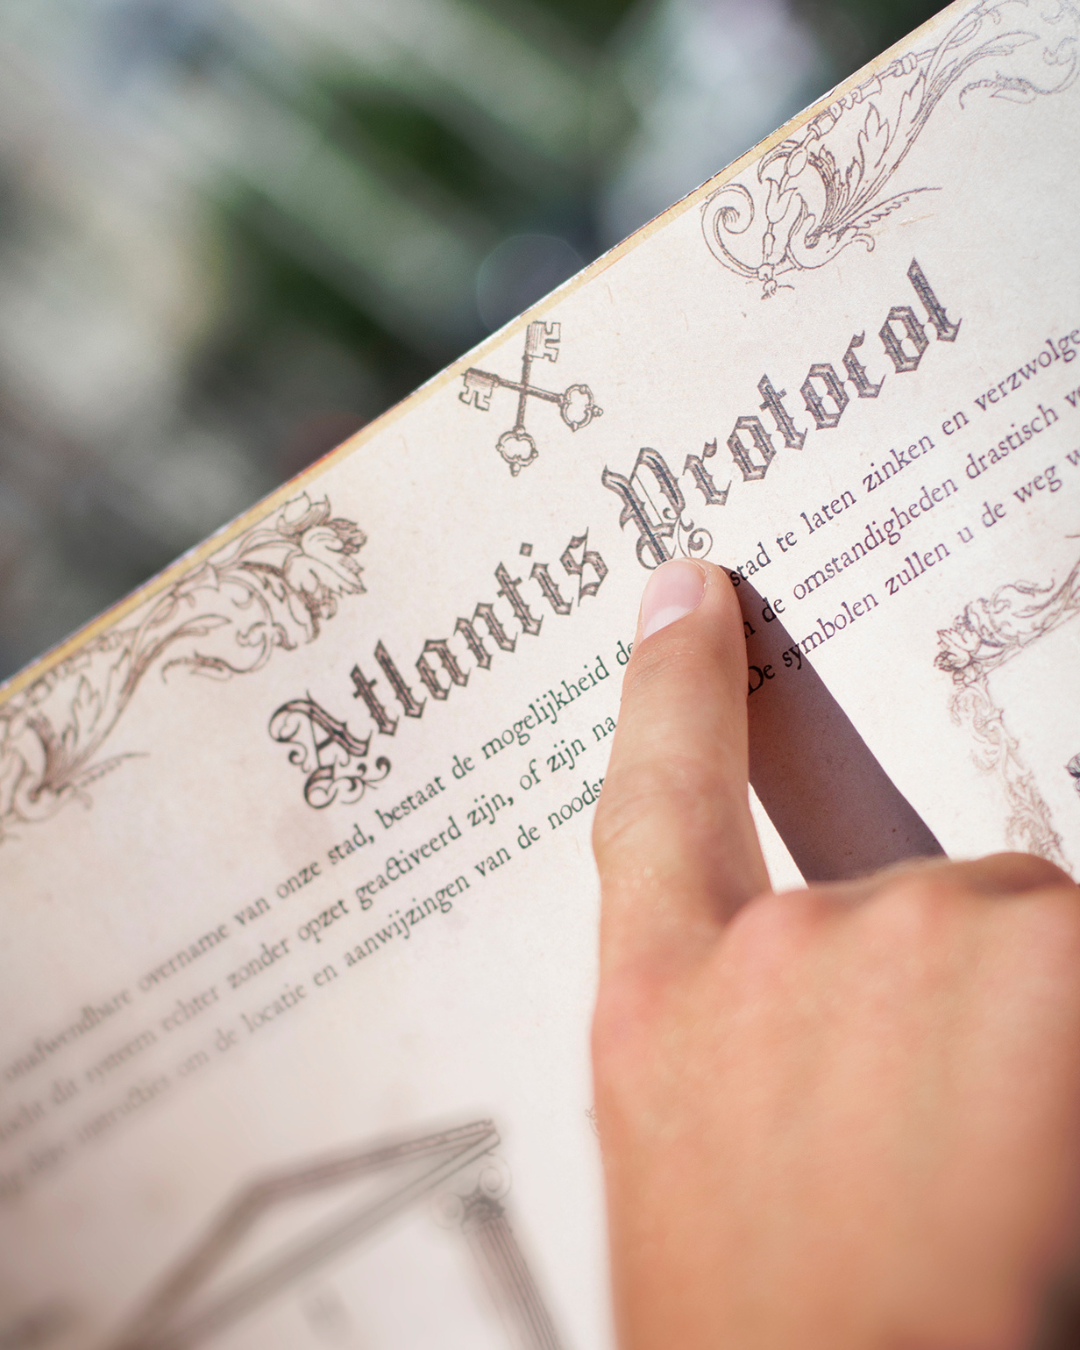 Atlantis Protocol
onafwendbare overname van onze stad, bestaat de mogelijkheid de stad te laten zinken en verzwolge
dit systeem echter zonder opzet geactiveerd zijn, of zijn na de omstandigheden drastisch
instructies om de locatie en aanwijzingen van de De symbolen zullen u de weg